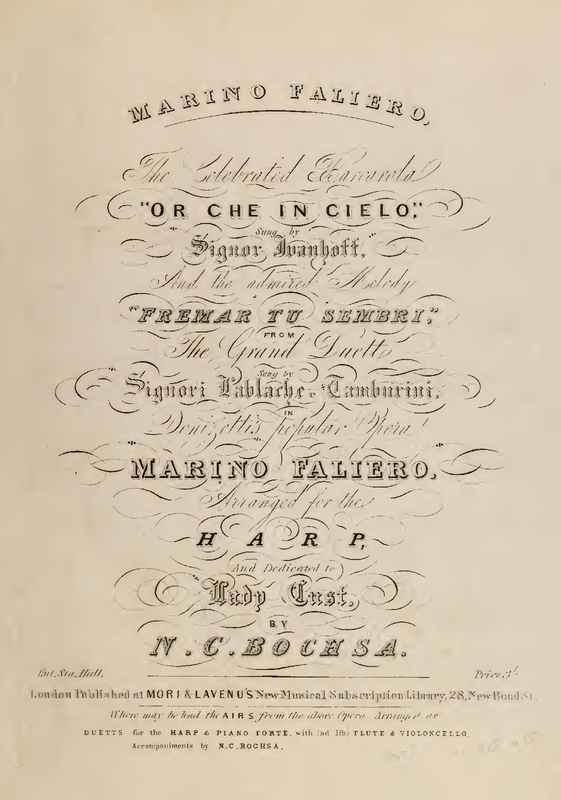 MARINO FALIERO,
The Celebrated Barcarola
"OR CHE IN CIELO,"
Sung by
Signor Ivanhoff,
And the admired Melody
"FREMAR TU SEMBRI,"
FROM
The Grand Duett
Sung by
Signori Lablache & Tamburini,
IN
Donizetti's popular Opera
MARINO FALIERO,
Arranged for the
HARP,
And Dedicated to
Lady Cust,
BY
N. C. BOCHSA.
Ent. Sta. Hall. Price 3/-
London Published at MORI & LAVENU'S New Musical Subscription Library, 28, New Bond St.
Where may be had the AIRS from the above Opera Arranged as
DUETTS for the HARP & PIANO FORTE, with (ad lib) FLUTE & VIOLONCELLO,
Accompaniments by N.C. BOCHSA.